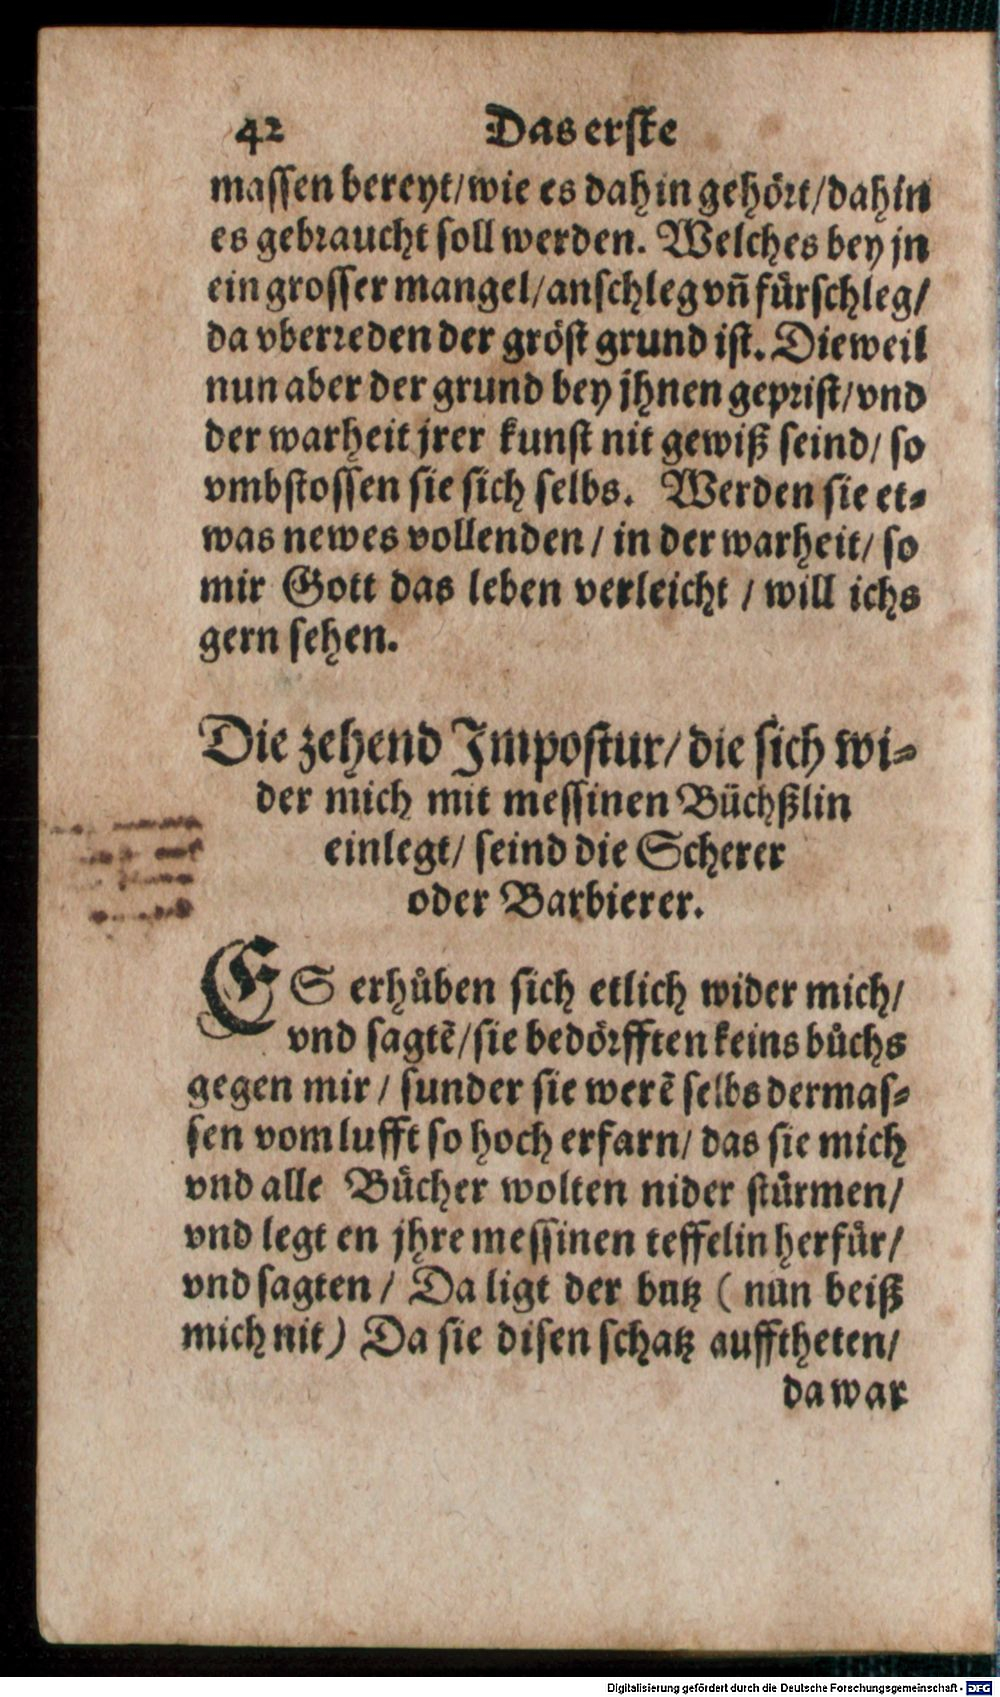 42 Das erste
massen bereyt/wie es dahin gehört/dahin
es gebraucht soll werden. Welches bey jn
ein grosser mangel/anschleg vñ fürschleg/
da vberreden der gröst grund ist. Dieweil
nun aber der grund bey jhnen geprist/vnd
der warheit jrer kunst nit gewiß seind/ so
vmbstossen sie sich selbs. Werden sie et-
was newes vollenden / in der warheit/ so
mir Gott das leben verleicht / will ichs
gern sehen.
Die zehend Impostur/ die sich wi-
der mich mit messinen Büchßlin
einlegt/ seind die Scherer
oder Barbierer.
ES erhůben sich etlich wider mich/
vnd sagtẽ/sie bedörfften keins bůchs
gegen mir / sunder sie werẽ selbs dermas-
sen vom lufft so hoch erfarn/ das sie mich
vnd alle Bücher wolten nider stürmen/
vnd legt en jhre messinen teffelin herfür/
vnd sagten / Da ligt der butz ( nun beiß
mich nit) Da sie disen schatz aufftheten/
da war
Digitalisierung gefördert durch die Deutsche Forschungsgemeinschaft - DFG